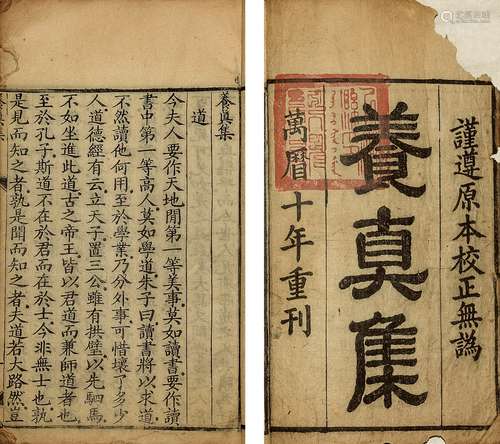 謹遵原本校正無譌
養真集
萬曆十年重刊
養眞集
道
今夫人要作天地間第一等美事莫如讀書要作讀
書中第一等高人莫如學道朱子曰讀書將以求道
不然讀他何用至於學業乃分外事可惜壞了多少
人道德經有云立天子置三公雖有拱璧以先駟馬
不如坐進此道古之帝王皆以君道而兼師道者也
至於孔子斯道不在於君而在於士今非無士也孰
是見而知之者孰是聞而知之者夫道若大路然豈